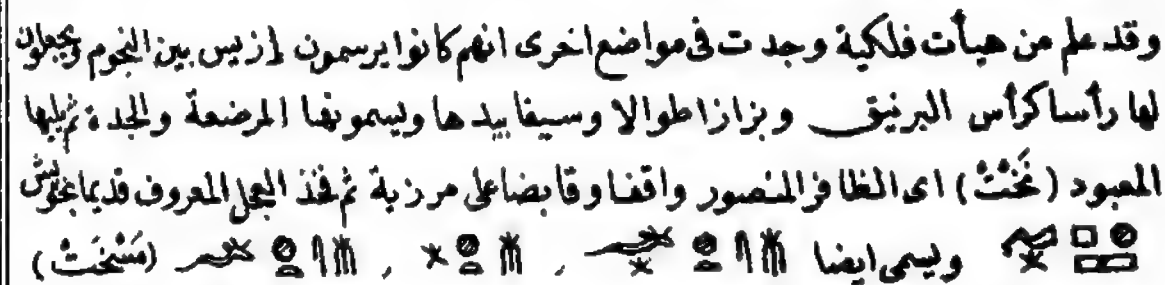 وقد علم من هيأت فلكية وجدت فى مواضع اخرى انهم كانوا يرسمون إزيس بين النجوم ويجعلون
لها رأسا كرأس البرنيق وبزازا طوالا وسيفا بيدها ويسمونها المرضعة والجدة ثم يليها
المعبود (نَخْتْ) اى الظافر المنصور واقفا وقابضا على مرزبة ثم فخذ العجل المعروف قديما
ويسمى ايضا (مَسْخَتْ)